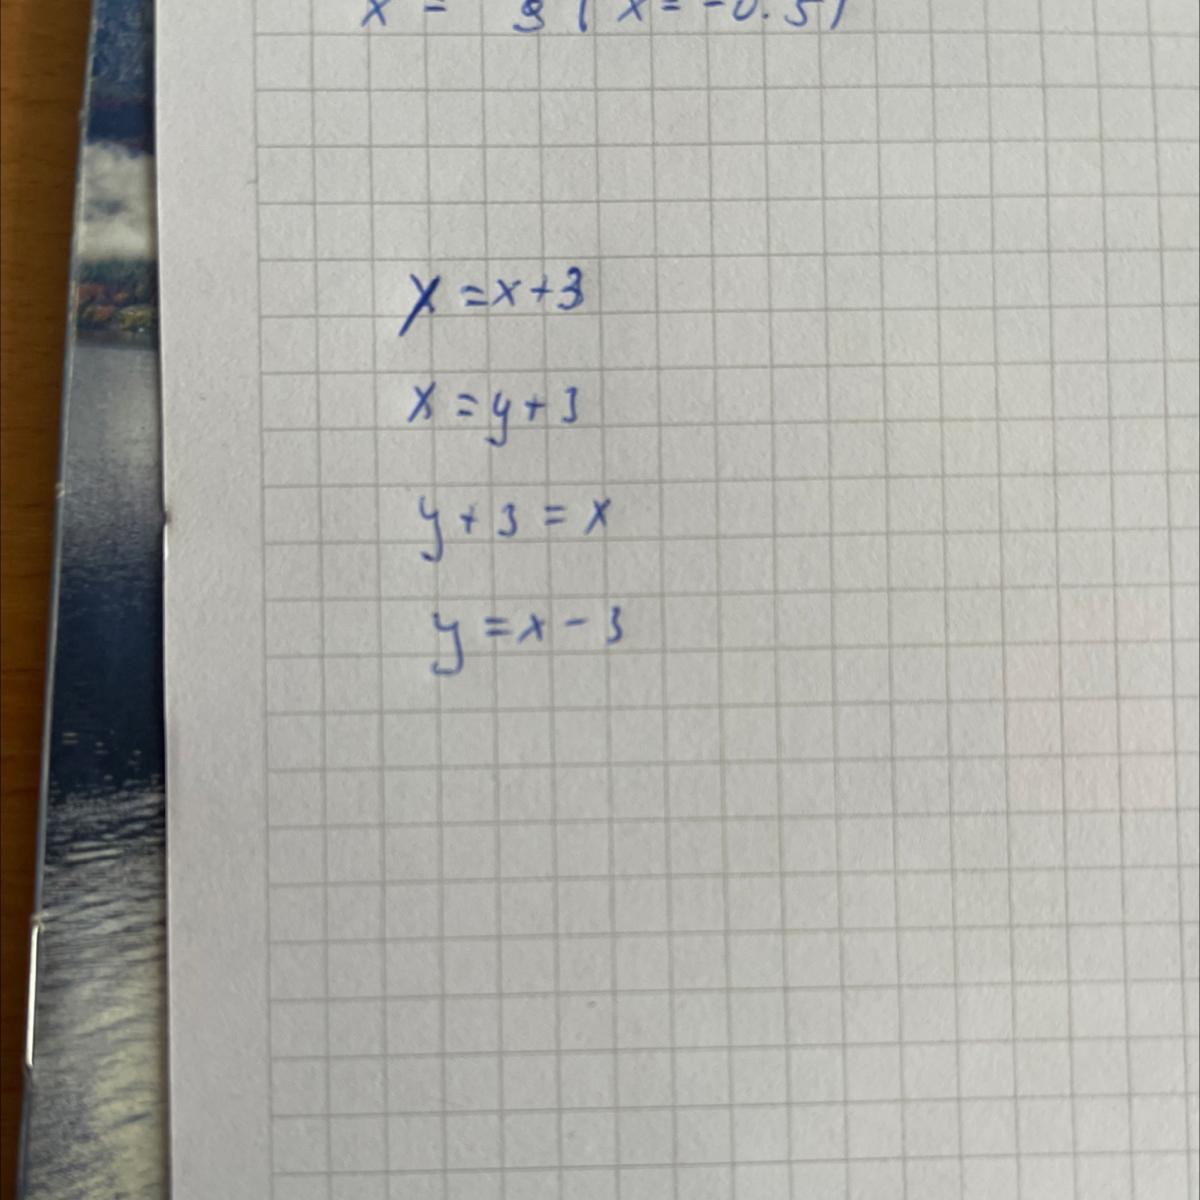 x = 
x = -0.5
y = x + 3
x = y + 3
y + 3 = x
y = x - 3